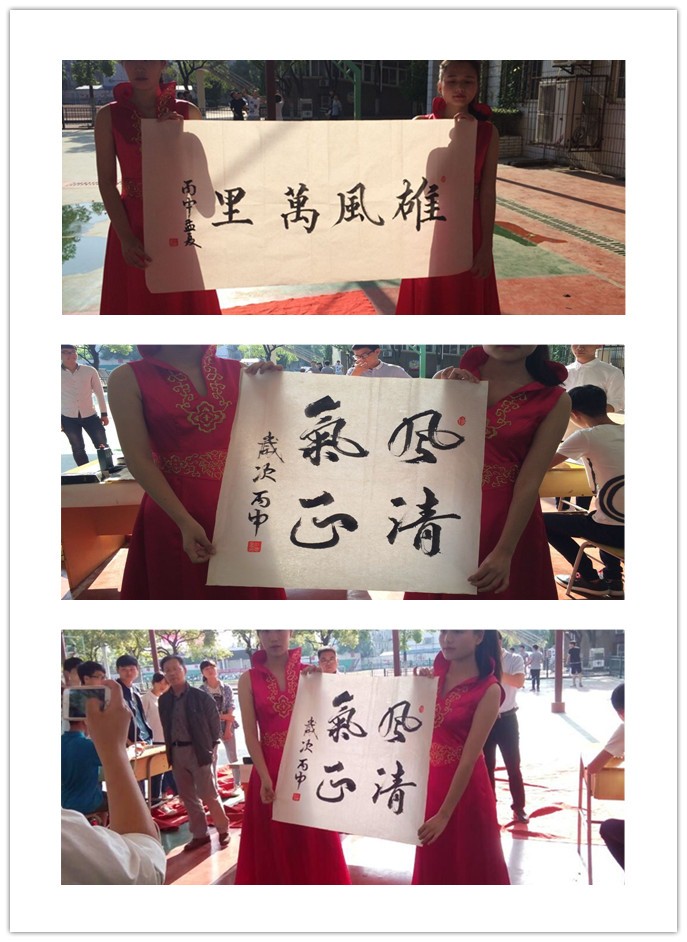 雄風萬里
丙申孟夏
风清
氣正
歲次丙申
风清
氣正
歲次丙申